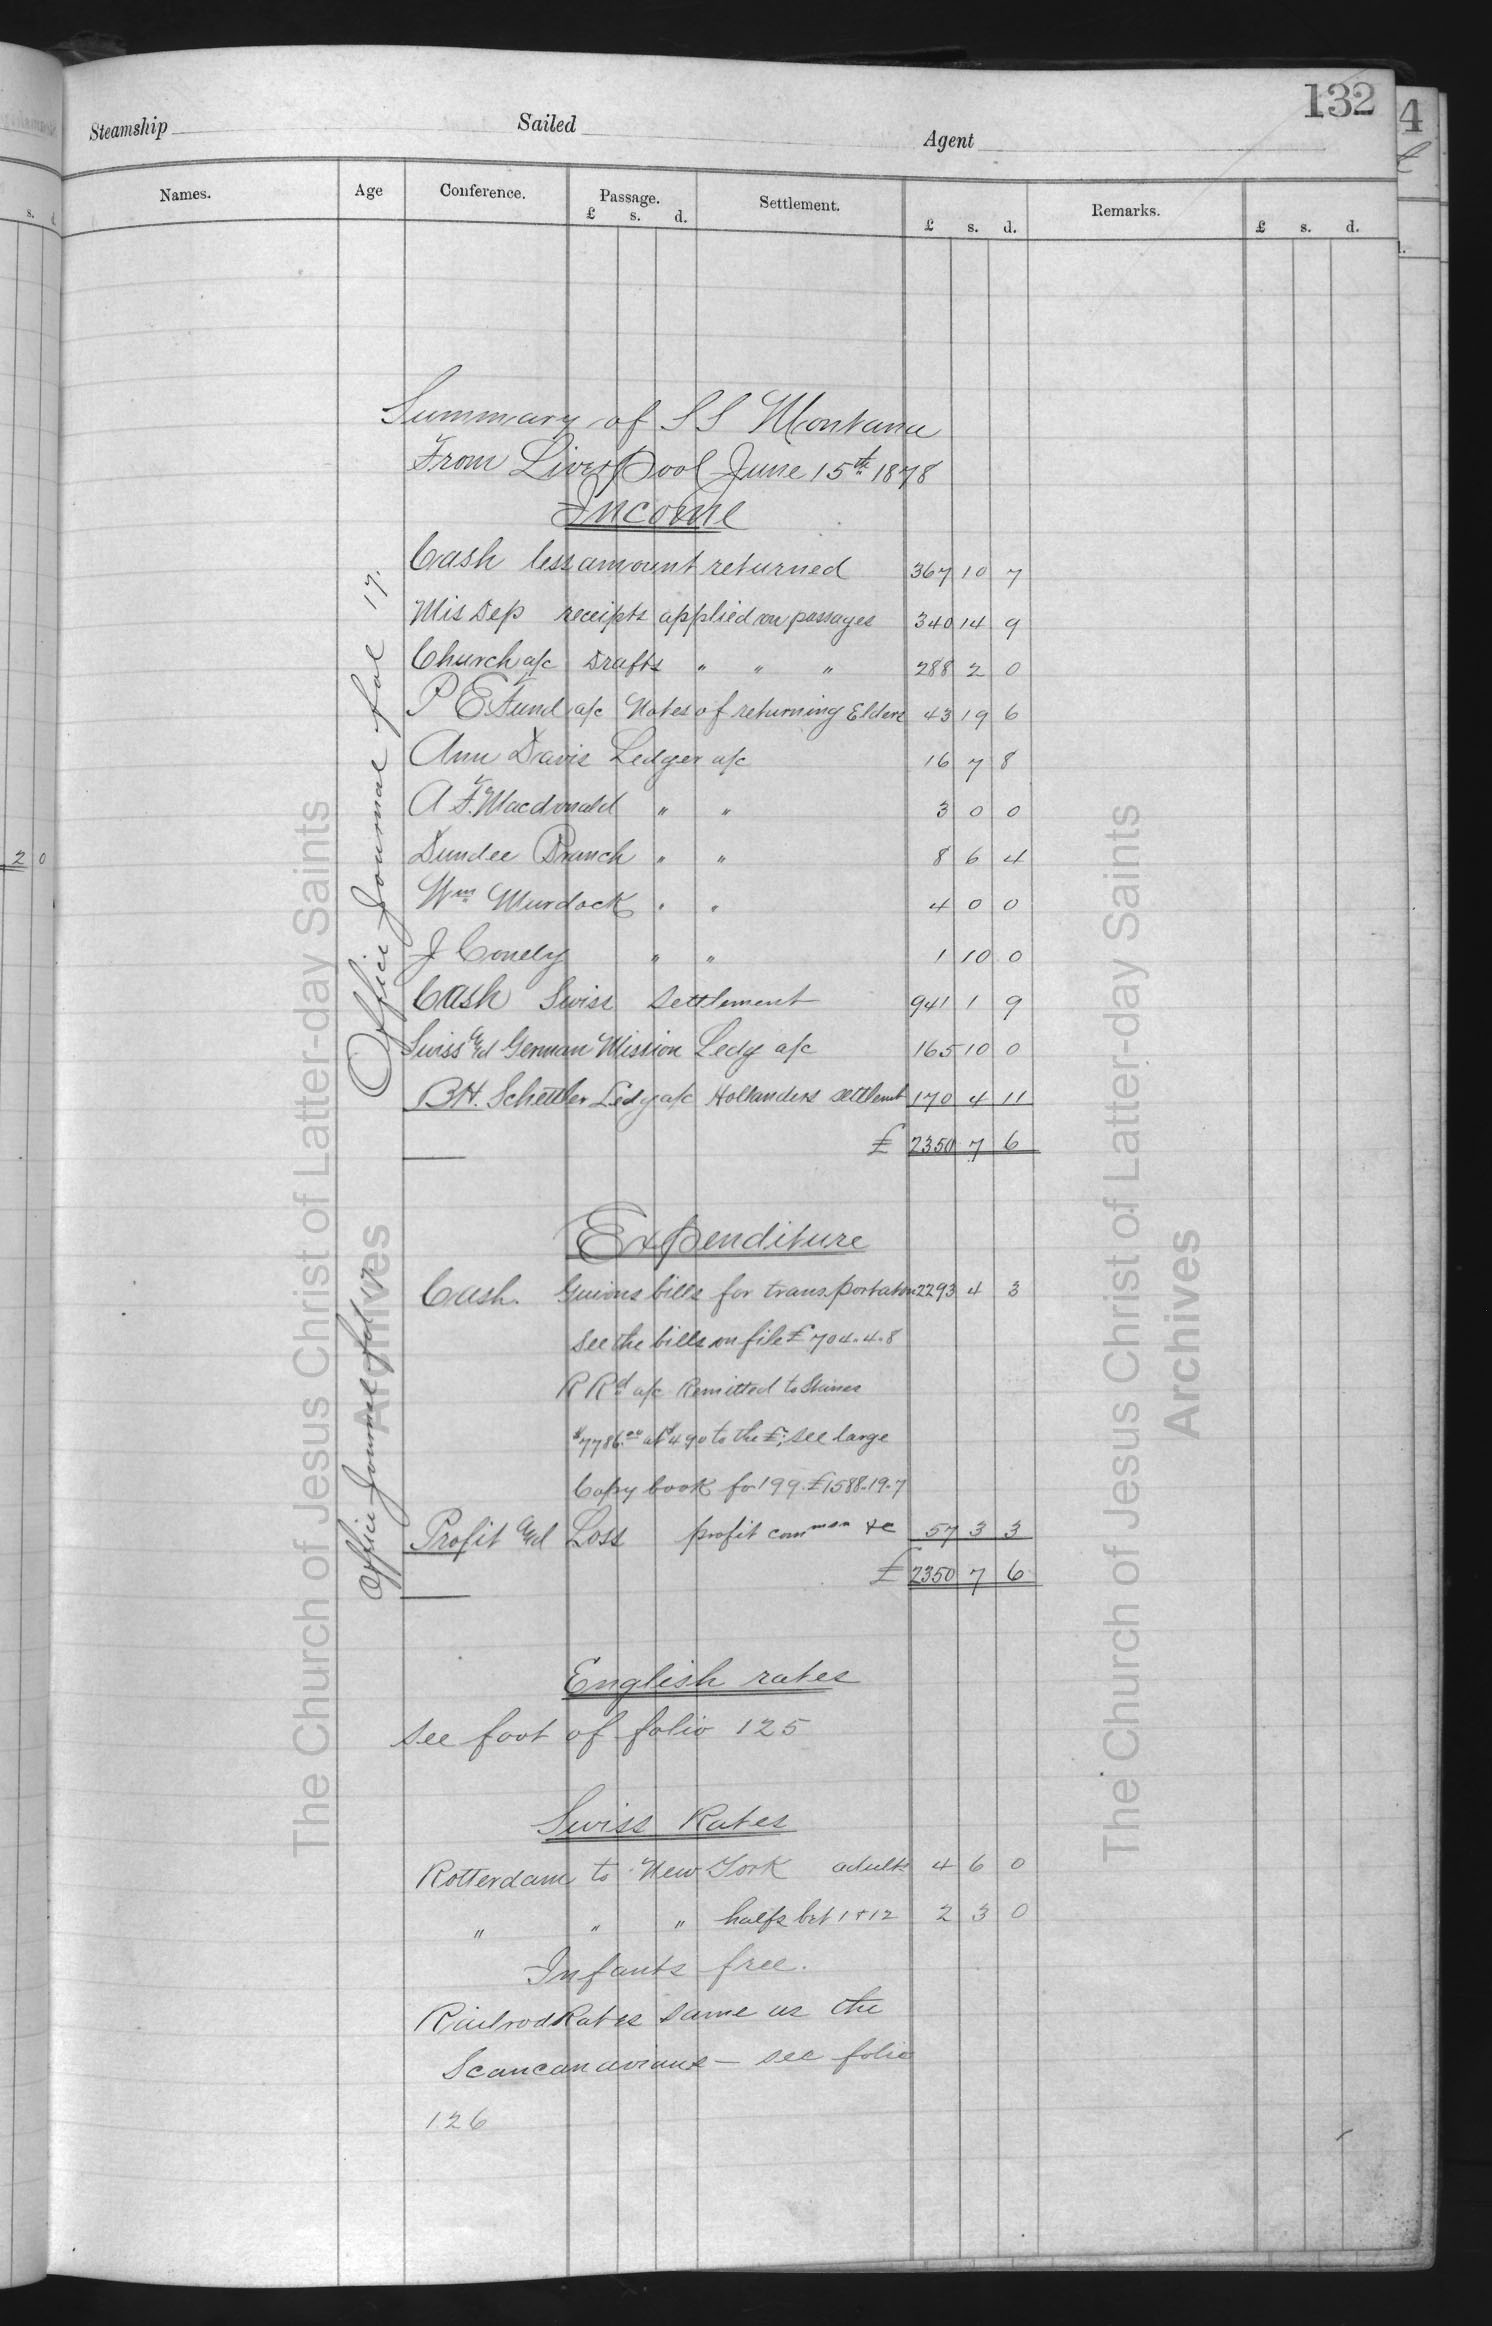 132
4
Steamship Sailed Agent
Names. Age Conference. Passage. Settlement. Remarks.
£ s. d. £ s. d. £ s. d.
s. d.
2 0
Summary of S S Montana
From LiverPool June 15th 1878
Income
Office Journal fol 17.
Cash less amount returned 367 10 7
Mis Dep receipts applied on passages 340 14 9
Church a/c Drafts " " " 288 2 0
P E Fund a/c Notes of returning Elders 43 19 6
Ann Davis Ledger a/c 16 7 8
A F. Macdonald " " 3 0 0
Dundee Branch " " 8 6 4
Wm Murdock " " 4 0 0
J Conely " " 1 10 0
Cash Swiss Settlement 941 1 9
Swiss and German Mission Ledg a/c 165 10 0
B H. Schettler Ledg a/c Hollanders settlemt 170 4 11
£ 2350 7 6
Expenditure
Office Journal fol 17
Cash. Guions bills for transportation 2293 4 3
see the bills on file £704.4.8
R Rd a/c Remitted to Staines
$7786.00 at $4 90 to the £; see large
Copy book fo. 199. £1588.19.7
Profit and Loss profit common &c 57 3 3
£ 2350 7 6
English rates
see foot of folio 125
Swiss Rates
Rotterdam to New York adults 4 6 0
" " " halfs bet 1 & 12 2 3 0
Infants free.
Railroad Rates same as the
Scancanavians — see folio
126
The Church of Jesus Christ of Latter-day Saints
Archives
The Church of Jesus Christ of Latter-day Saints
Archives